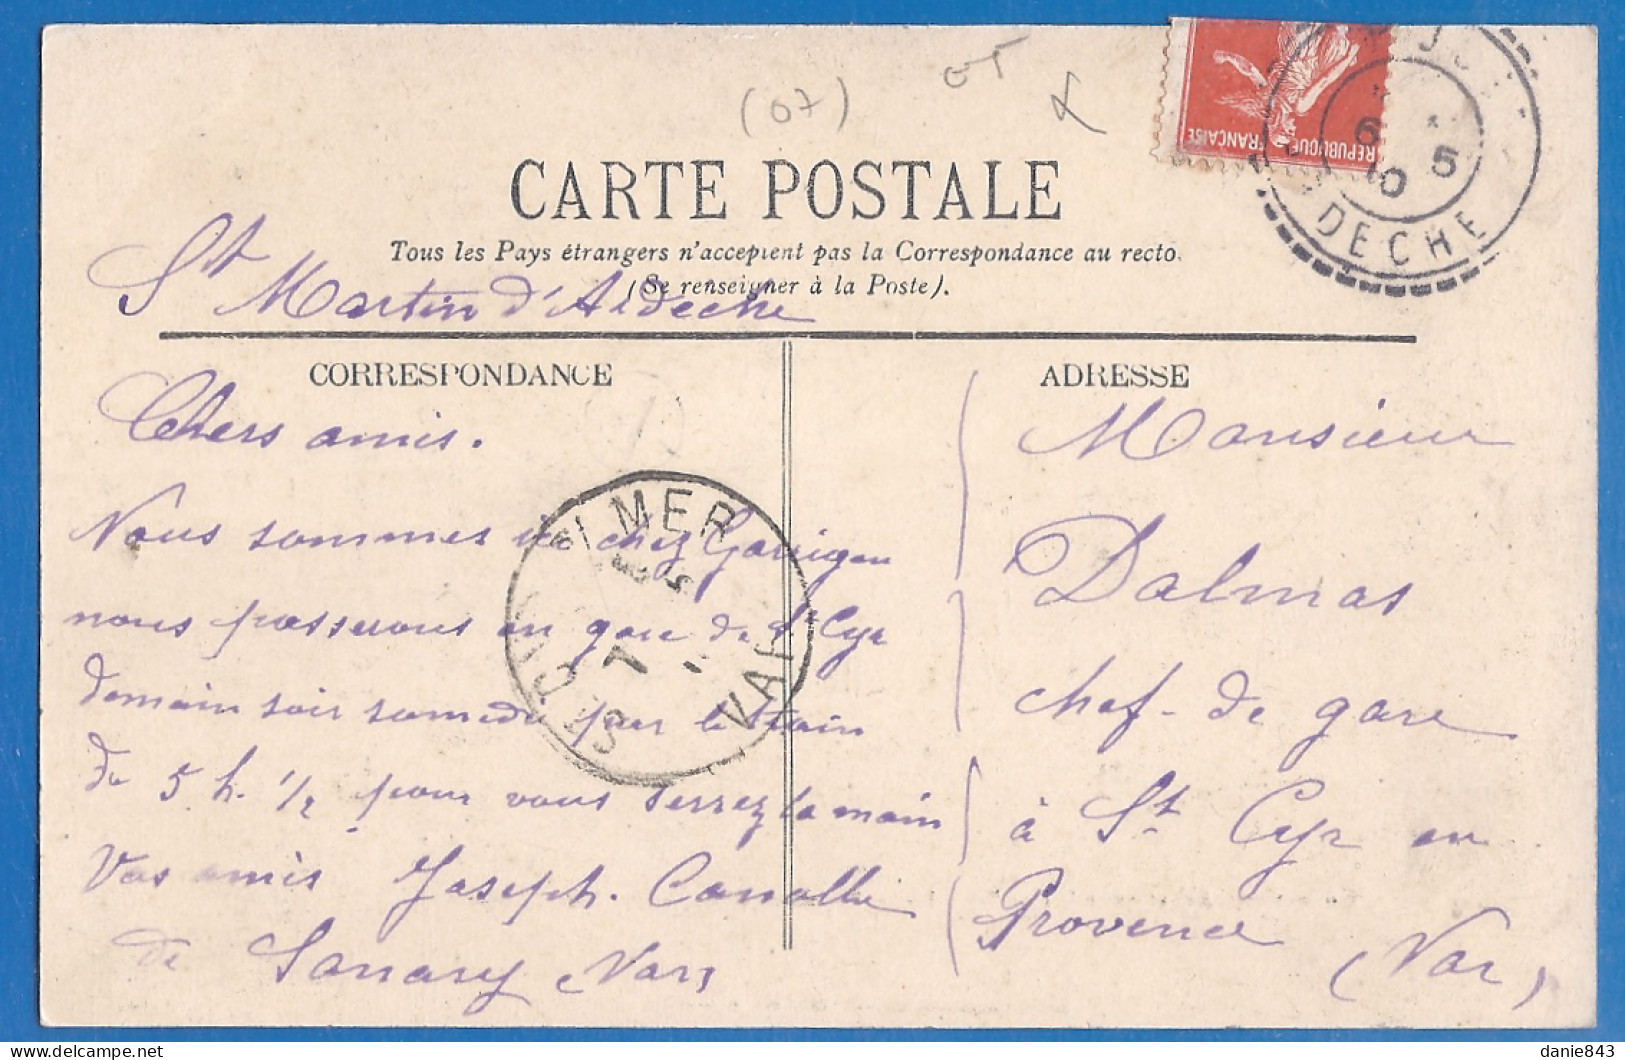 (07)
RÉPUBLIQUE FRANÇAISE
6 5
10
DÈCHE
CARTE POSTALE
Tous les Pays étrangers n'acceptent pas la Correspondance au recto.
(Se renseigner à la Poste).
St Martin d'Ardeche
CORRESPONDANCE
ADRESSE
Chers amis.
Nous sommes ici chez Garrigou
nous passerons en gare de St Cyr
demain soir samedi par le train
de 5 h. 1/2 pour vous serrez la main
Vos amis Joseph.
de Sanary (Var)
Monsieur
Dalmas
chef-de gare
à St Cyr en
Provence
(Var)
ST CYR S MER
7 5
VAR
danie843